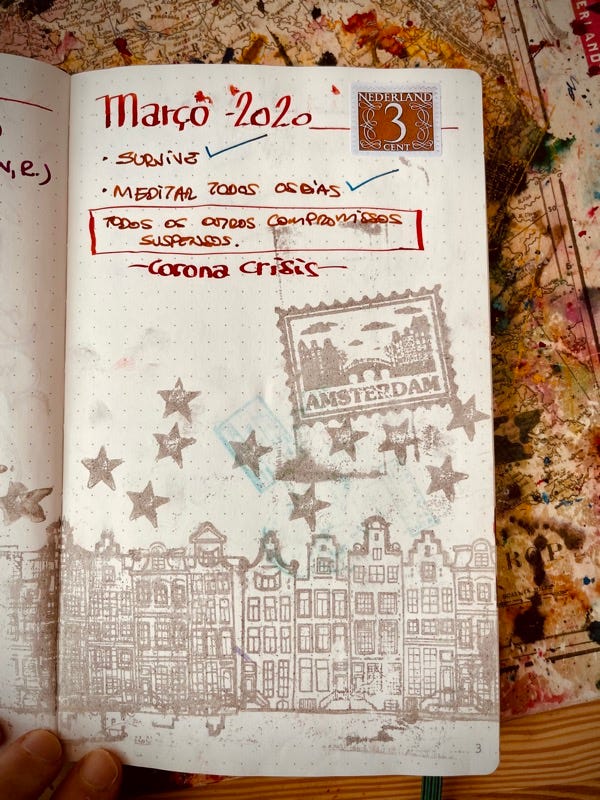 Março - 2020
NEDERLAND
3
CENT
• SURVIVE
• MEDITAR TODOS OS DIAS
TODOS OS OUTROS COMPROMISSOS
SUSPENSOS.
- Corona crisis -
AMSTERDAM
3